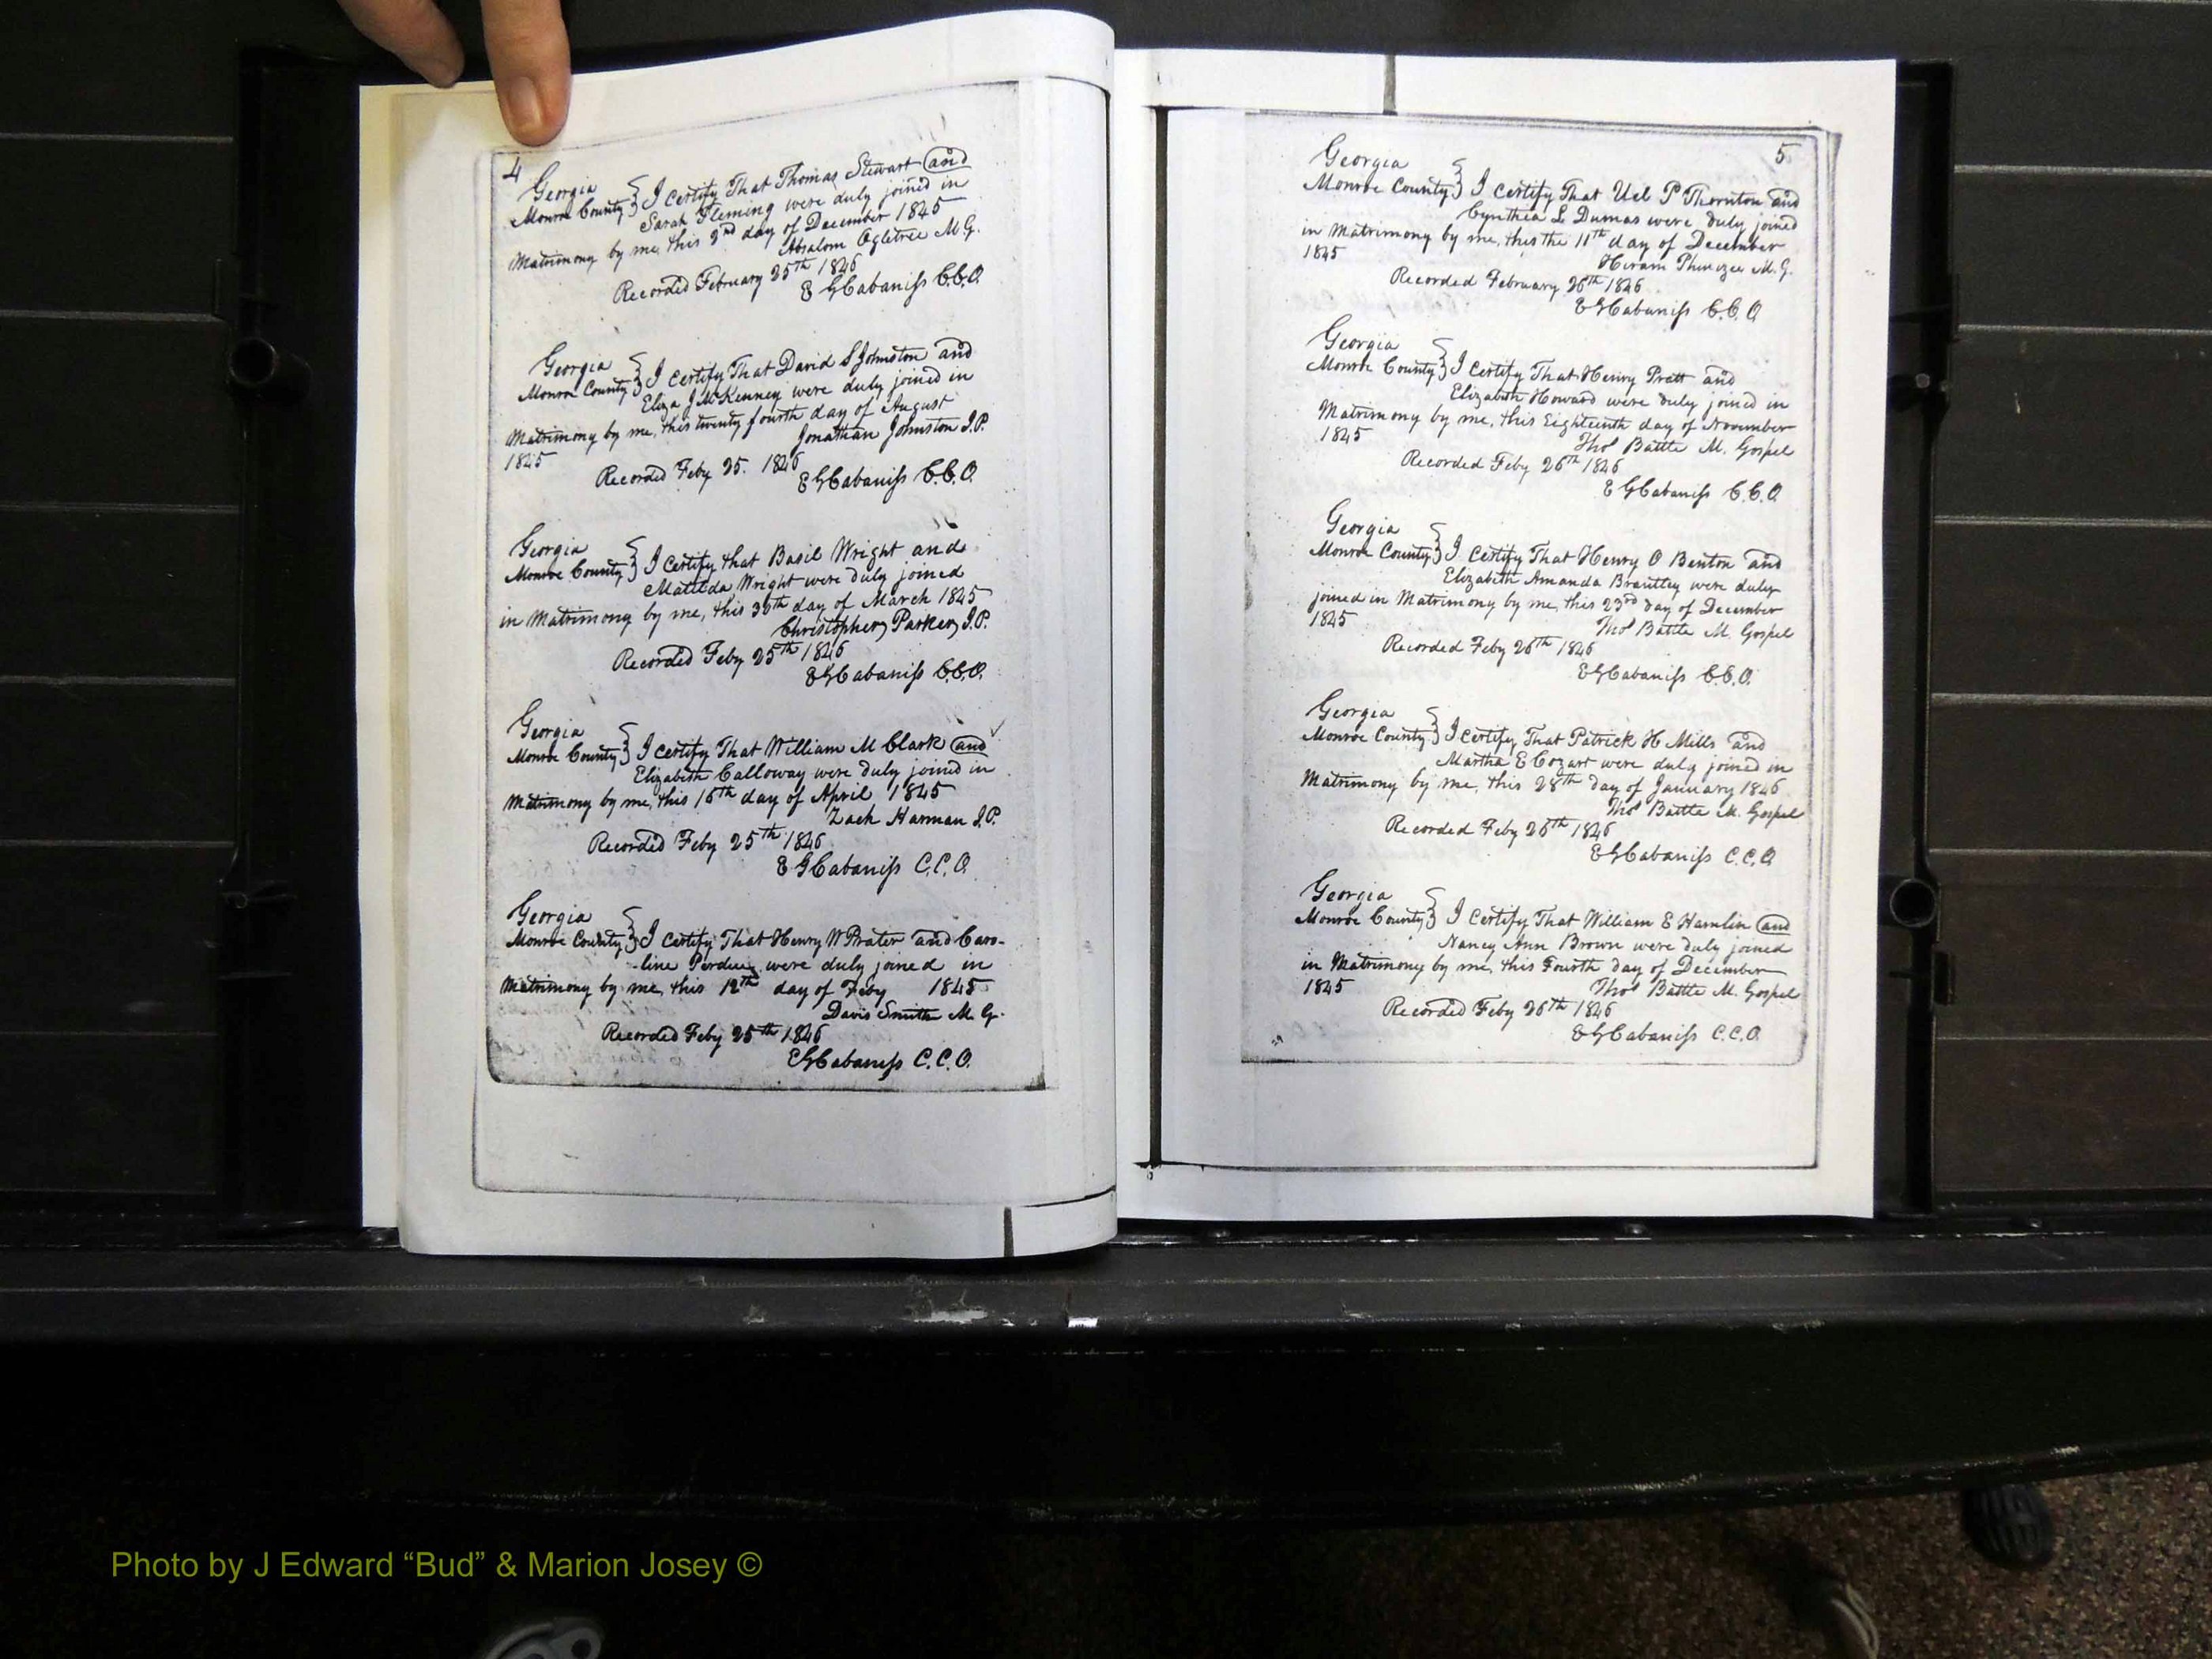 4
Georgia
Monroe County } I certify That Thomas Stewart and
Sarah Fleming were duly joined in
Matrimony by me, this 2nd day of December 1845
Absalom Ogletree M.G.
Recorded February 25th 1846
E G Cabaniss C.C.O.
Georgia
Monroe County } I certify That David S Johnston and
Eliza J McKinney were duly joined in
Matrimony by me, this twenty fourth day of August
1845 Jonathan Johnston J.P.
Recorded Feby 25. 1846
E G Cabaniss C.C.O.
Georgia
Monroe County } I certify that Basil Wright and
Matilda Wright were duly joined
in Matrimony by me, this 30th day of March 1845
Christopher Parker J.P.
Recorded Feby 25th 1846
E G Cabaniss C.C.O.
Georgia
Monroe County } I certify That William M Clark and
Elizabeth Calloway were duly joined in
Matrimony by me, this 16th day of April 1845
Zach Harman J.P.
Recorded Feby 25th 1846
E G Cabaniss C.C.O.
Georgia
Monroe County } I certify That Henry W Prater and Caro-
-line Perdue were duly joined in
Matrimony by me, this 12th day of Feby 1845
Davis Smith M.G.
Recorded Feby 25th 1846
E G Cabaniss C.C.O.
5
Georgia
Monroe County } I certify That Uel P Thornton and
Cynthia L Dumas were duly joined
in Matrimony by me, this the 11th day of December
1845 Hiram Phinizee M.G.
Recorded February 26th 1846
E G Cabaniss C.C.O.
Georgia
Monroe County } I certify That Henry Pratt and
Elizabeth Howard were duly joined in
Matrimony by me, this Eighteenth day of November
1845 Thos Battle M. Gospel
Recorded Feby 26th 1846
E G Cabaniss C.C.O.
Georgia
Monroe County } I certify That Henry O Benton and
Elizabeth Amanda Brantley were duly
joined in Matrimony by me, this 23rd day of December
1845 Thos Battle M. Gospel
Recorded Feby 26th 1846
E G Cabaniss C.C.O.
Georgia
Monroe County } I certify That Patrick H Mills and
Martha E Cozart were duly joined in
Matrimony by me, this 28th day of January 1846
Thos Battle M. Gospel
Recorded Feby 26th 1846
E G Cabaniss C.C.O.
Georgia
Monroe County } I certify That William E Hamlin and
Nancy Ann Brown were duly joined
in Matrimony by me, this Fourth day of December
1845 Thos Battle M. Gospel
Recorded Feby 26th 1846
E G Cabaniss C.C.O.
Photo by J Edward “Bud” & Marion Josey ©